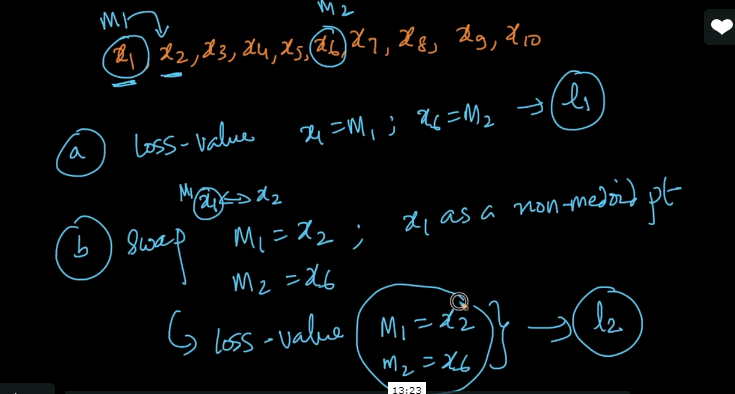 M1 M2
x1, x2, x3, x4, x5, x6, x7, x8, x9, x10
a loss-value x1 = M1 ; x6 = M2 → l1
M1 x1 ↔ x2
b Swap M1 = x2 ; x1 as a non-medoid pt
M2 = x6
↳ loss-value M1 = x2 } → l2
m2 = x6
13:23